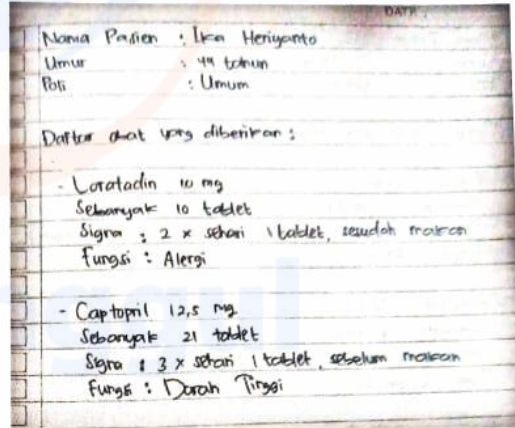 DATE :
Nama Pasien : Ika Heriyanto
Umur : 44 tahun
Poli : Umum
Daftar obat yang diberikan :
- Loratadin 10 mg
Sebanyak 10 tablet
Signa : 2 x sehari 1 tablet, sesudah makan
Fungsi : Alergi
- Captopril 12,5 mg
Sebanyak 21 tablet
Signa : 3 x sehari 1 tablet, sebelum makan
Fungsi : Darah Tinggi